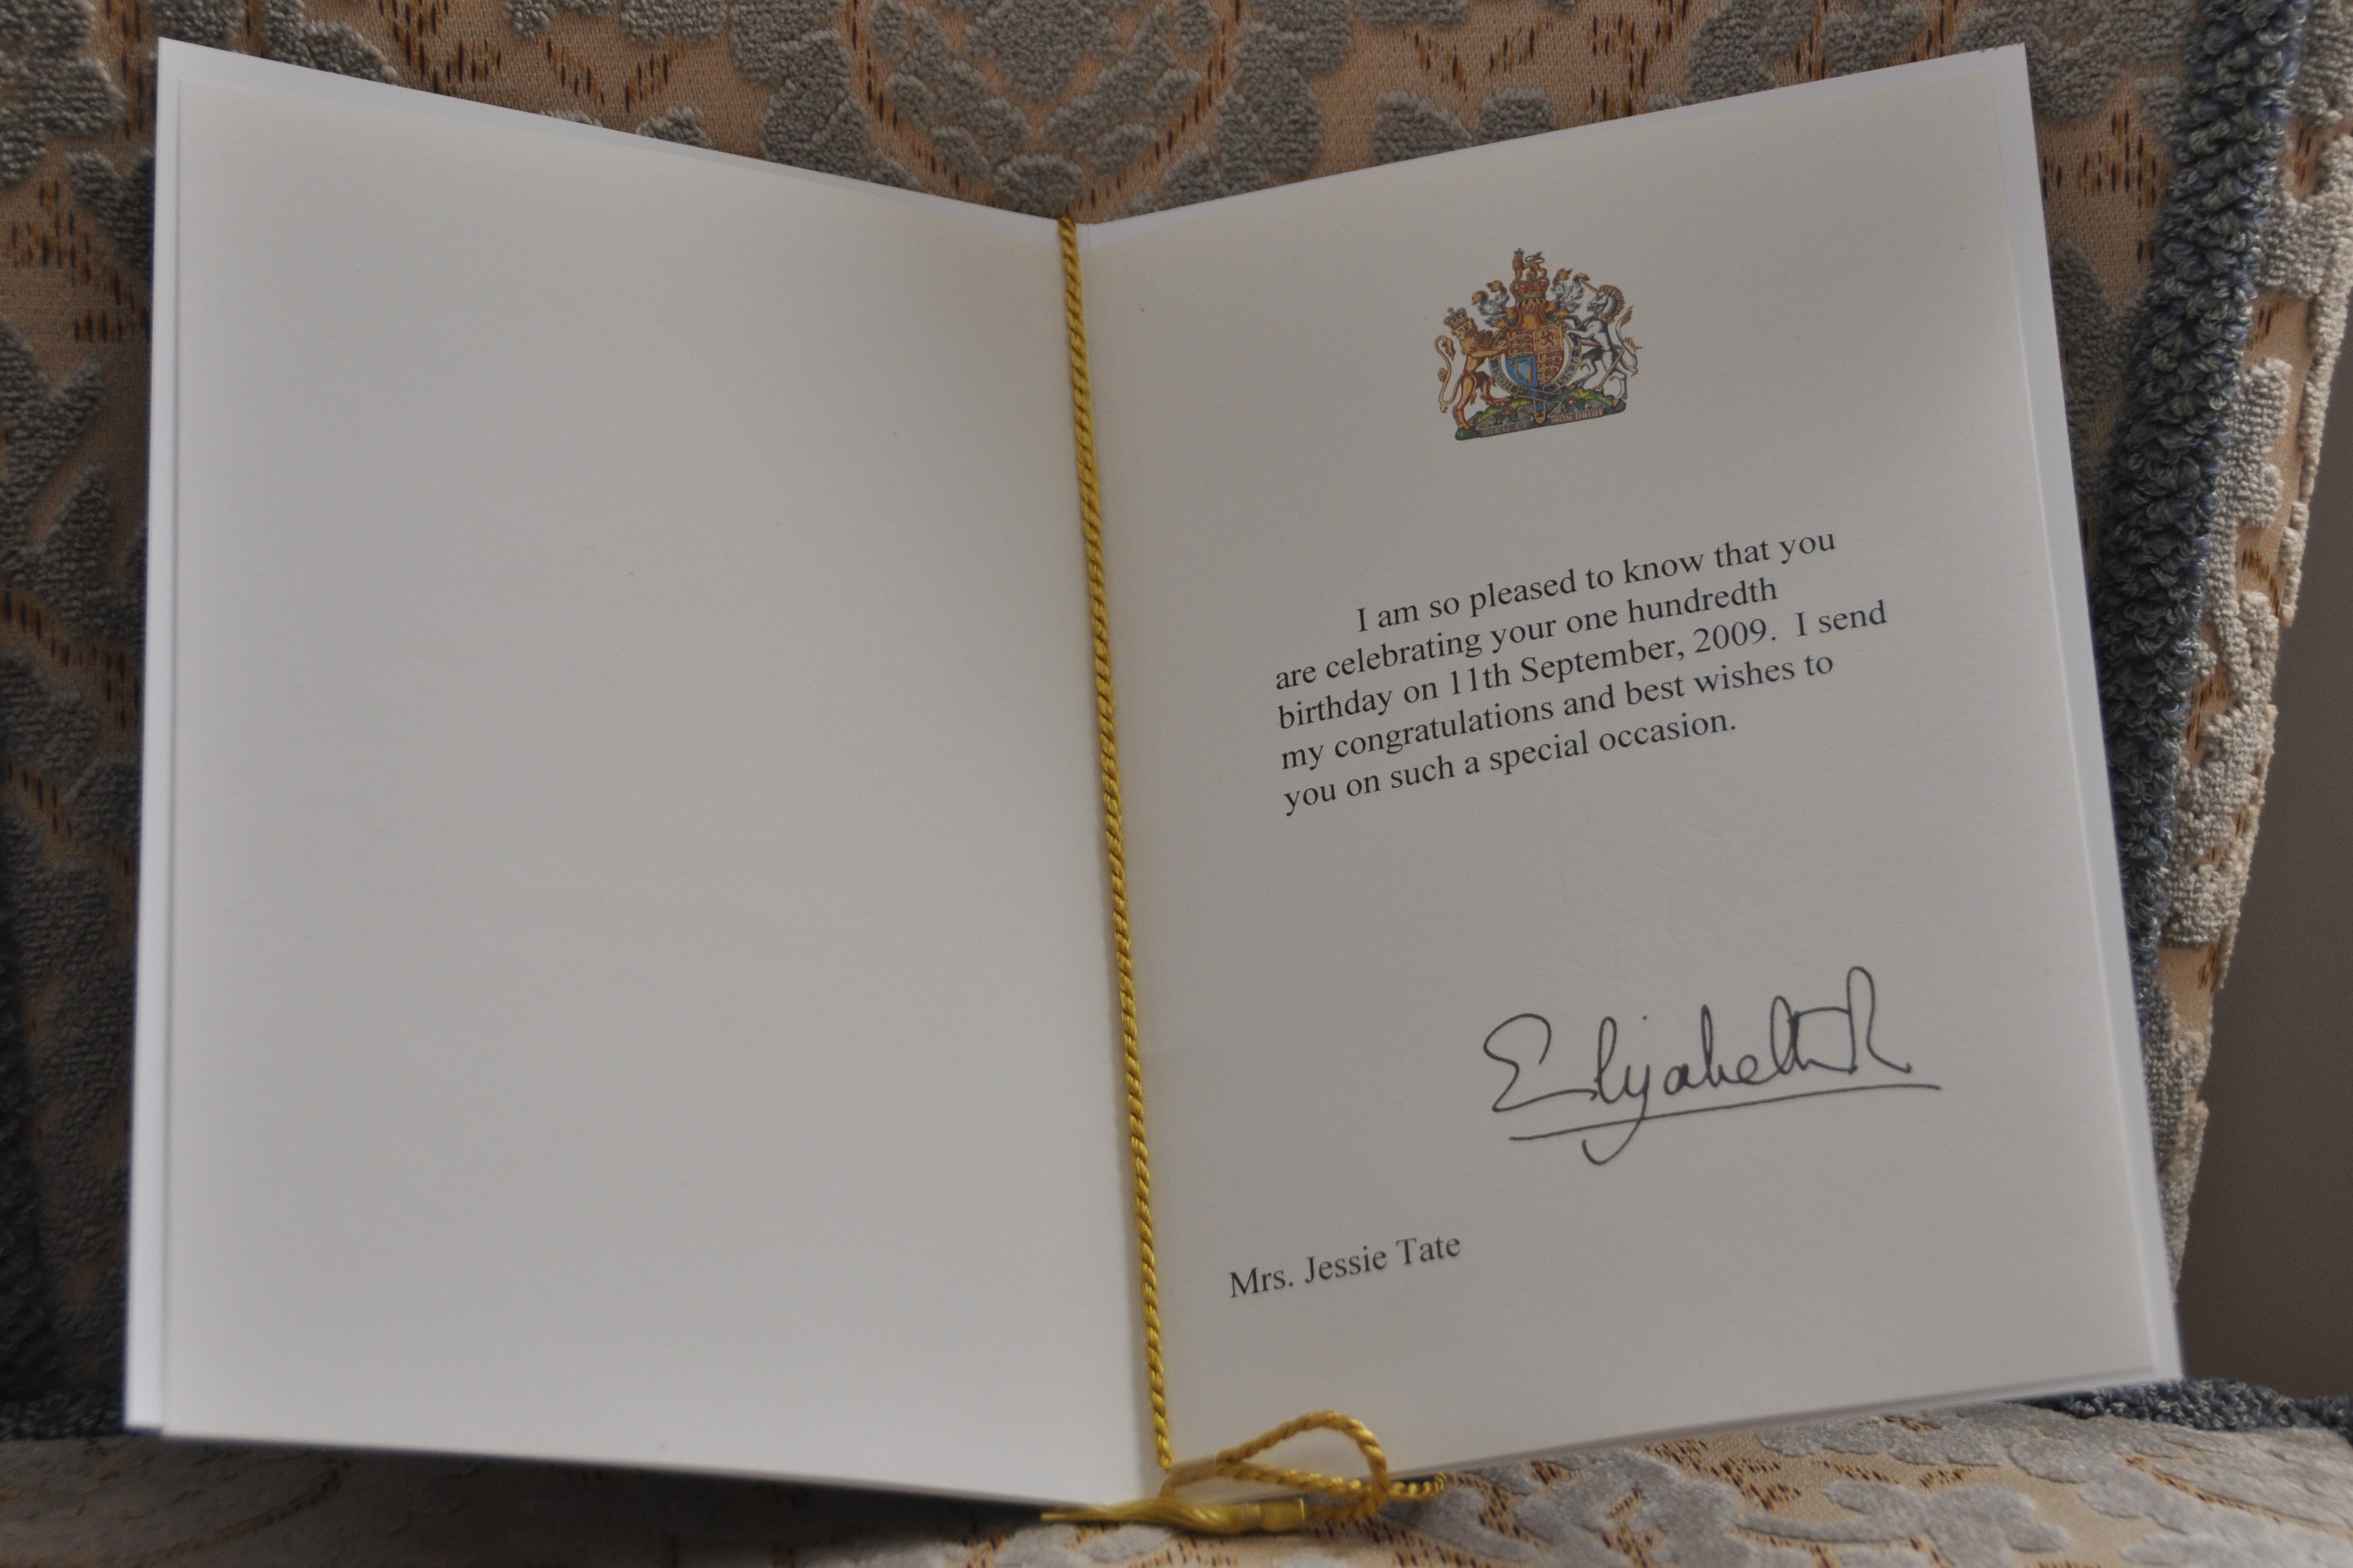 I am so pleased to know that you
are celebrating your one hundredth
birthday on 11th September, 2009. I send
my congratulations and best wishes to
you on such a special occasion.
Elizabeth R
Mrs. Jessie Tate